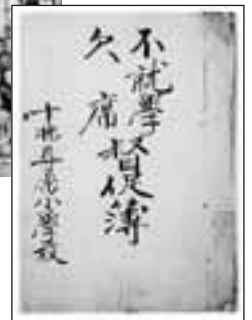 不就學
欠席
督促簿
尋常小學校